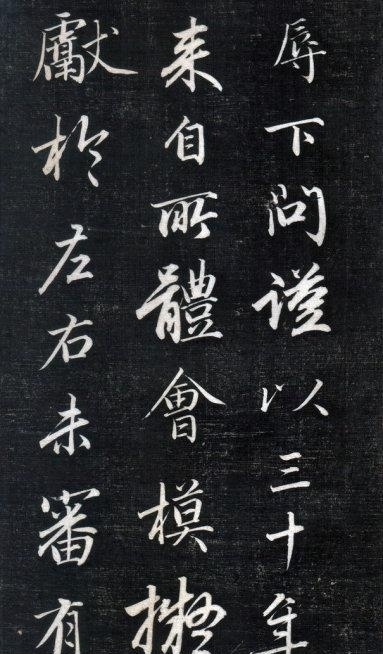 辱下問謹以三十年
來自所體會模擬
獻於左右未審有